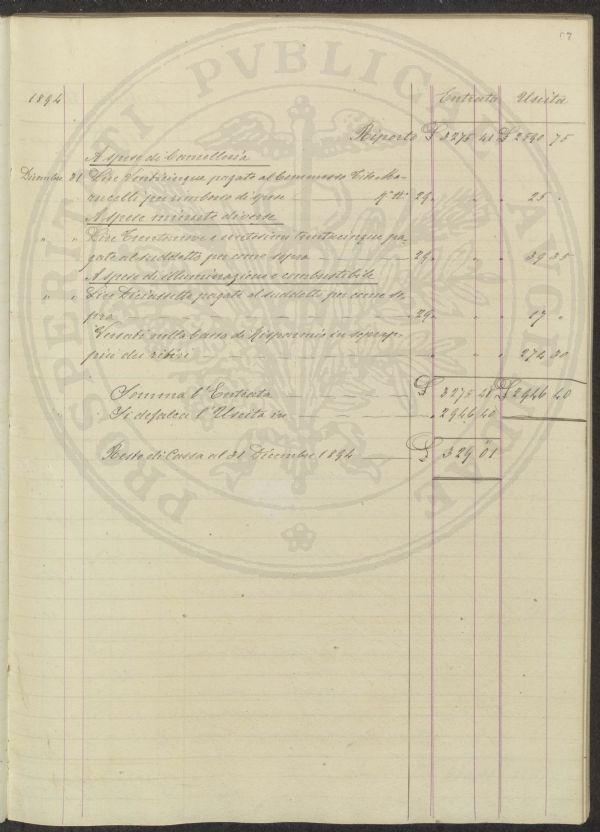 67
1894 Entrata Uscita
Riporto £ 3275 41 £ 2590 75
A Spese di Cancelleria
Dicembre 31 Lire Venticinque pagate al Commesso Tito
per rimborso di spese 29 " " " 25 "
A Spese minute diverse
" " Lire Trentanove e centesimi trentacinque pa-
gate al suddetto per come sopra 29 " " " 39 35
A Spese di Illuminazione e combustibile
" " Lire Diciassette pagate al suddetto per come so-
pra 29 " " " 17 "
Versati nella Cassa di Risparmio in
più dei ritiri " " " 274 30
Somma l'Entrata £ 3275 41 £ 2946 40
Si defalca l'Uscita in " 2946 40
Resto di Cassa al 31 Dicembre 1894 £ 329 01
PROSPERITATI PVBLICAE AVGENDAE